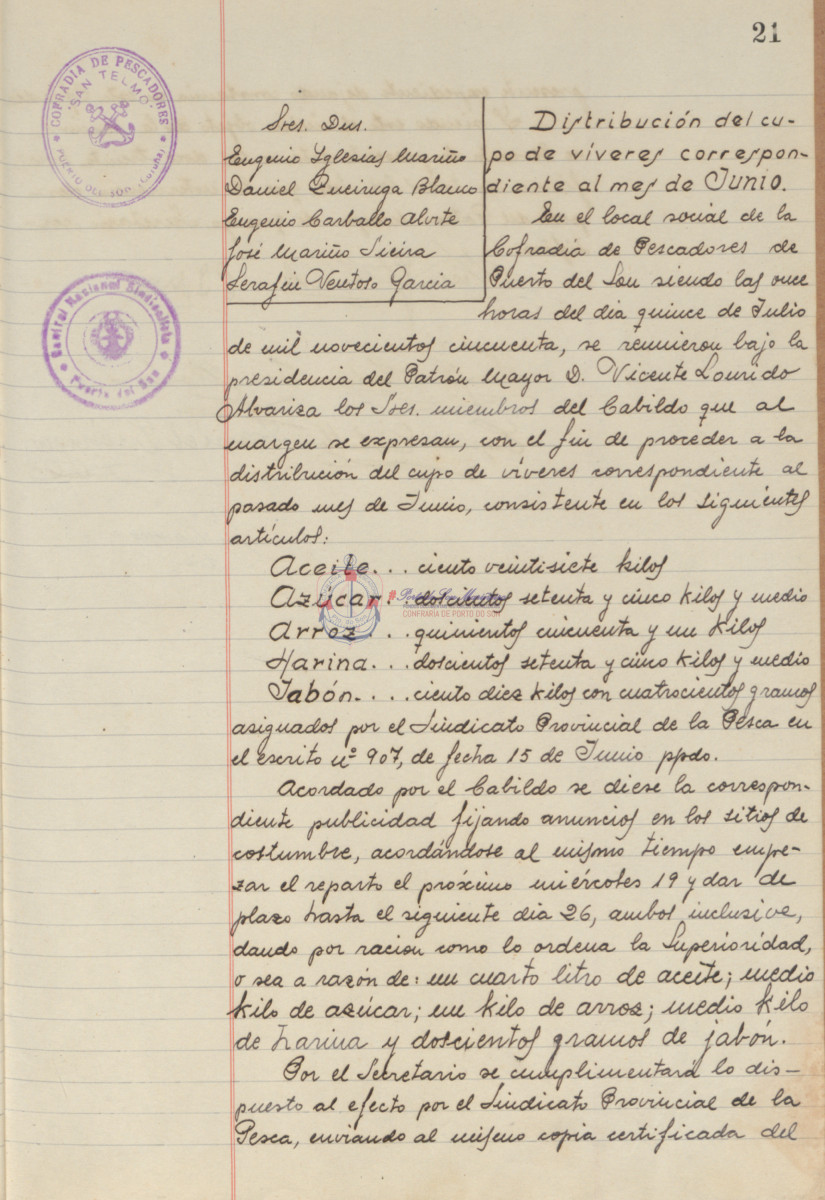 21
COFRADIA DE PESCADORES
"SAN TELMO"
PUERTO DEL SON (Coruña)
Sres. Dns.
Eugenio Yglesias Mariño
Daniel Queiruga Blanco
Eugenio Carballo Alvite
José Mariño Sieira
Serafin Ventoso Garcia
Distribución del cu-
po de víveres correspon-
diente al mes de Junio.
En el local social de la
Cofradia de Pescadores de
Puerto del Son siendo las once
horas del dia quince de Julio
Central Nacional Sindicalista
Puerto del Son
de mil novecientos cincuenta, se reunieron bajo la
presidencia del Patrón Mayor D. Vicente Lourido
Alvariza los Sres. miembros del Cabildo que al
margen se expresan, con el fin de proceder a la
distribución del cupo de víveres correspondiente al
pasado mes de Junio, consistente en los siguientes
artículos:
Aceite... ciento veintisiete kilos
Azúcar... doscientos setenta y cinco kilos y medio
Arroz... quinientos cincuenta y un kilos
Harina... doscientos setenta y cinco kilos y medio
Jabón.... ciento diez kilos con cuatrocientos gramos
CONFRARÍA DE PORTO DO SON
asignados por el Sindicato Provincial de la Pesca en
el escrito nº 907, de fecha 15 de Junio ppdo.
Acordado por el Cabildo se diese la correspon-
diente publicidad fijando anuncios en los sitios de
costumbre, acordándose al mismo tiempo empe-
zar el reparto el próximo miércoles 19 y dar de
plazo hasta el siguiente dia 26, ambos inclusive,
dando por racion como lo ordena la Superioridad,
o sea a razón de: un cuarto litro de aceite; medio
kilo de azúcar; un kilo de arroz; medio kilo
de harina y doscientos gramos de jabón.
Por el Secretario se cumplimentará lo dis-
puesto al efecto por el Sindicato Provincial de la
Pesca, enviando al mismo copia certificada del